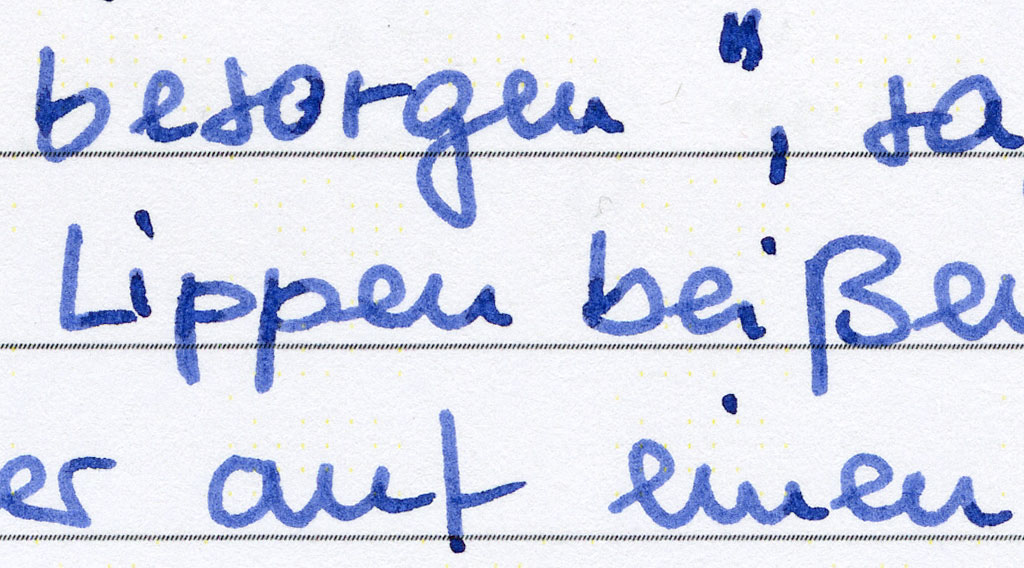 besorgen", sa
Lippen beißen
er auf einen